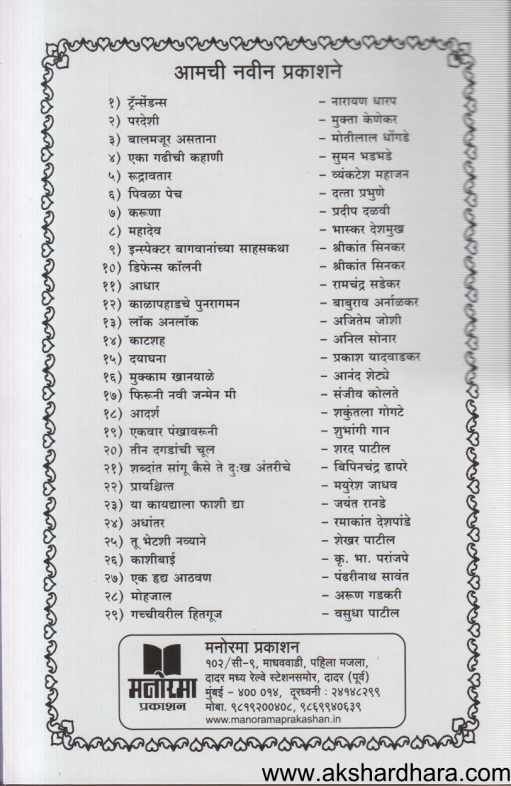 आमची नवीन प्रकाशने
१) ट्रॅन्सेंडन्स – नारायण धारप
२) परदेशी – मुक्ता केणेकर
३) बालमजूर असताना – मोतीलाल धोंगडे
४) एका गढीची कहाणी – सुमन भडभडे
५) रूद्रावतार – व्यंकटेश महाजन
६) पिवळा पेच – दत्ता प्रभुणे
७) करूणा – प्रदीप दळवी
८) महादेव – भास्कर देशमुख
९) इन्स्पेक्टर बागवानांच्या साहसकथा – श्रीकांत सिनकर
१०) डिफेन्स कॉलनी – श्रीकांत सिनकर
११) आधार – रामचंद्र सडेकर
१२) काळापहाडचे पुनरागमन – बाबुराव अर्नाळकर
१३) लॉक अनलॉक – अजितेम जोशी
१४) काटशह – अनिल सोनार
१५) दयाघना – प्रकाश यादवाडकर
१६) मुक्काम खानयाळे – आनंद शेट्ये
१७) फिरूनी नवी जन्मेन मी – संजीव कोलते
१८) आदर्श – शकुंतला गोगटे
१९) एकवार पंखावरूनी – शुभांगी गान
२०) तीन दगडांची चूल – शरद पाटील
२१) शब्दांत सांगू कैसे ते दुःख अंतरीचे – बिपिनचंद्र ढापरे
२२) प्रायश्चित्त – मयुरेश जाधव
२३) या कायद्याला फाशी द्या – जयंत रानडे
२४) अधांतर – रमाकांत देशपांडे
२५) तू भेटशी नव्याने – शेखर पाटील
२६) काशीबाई – कृ. भा. परांजपे
२७) एक हृद्य आठवण – पंढरीनाथ सावंत
२८) मोहजाल – अरूण गडकरी
२९) गच्चीवरील हितगूज – वसुधा पाटील
मनोरमा
प्रकाशन
मनोरमा प्रकाशन
१०२/सी-९, माधववाडी, पहिला मजला,
दादर मध्य रेल्वे स्टेशनसमोर, दादर (पूर्व)
मुंबई - ४०० ०१४, दूरध्वनी : २४१४८२९९
मोबा. ९८१९२००४०८, ९८६९९४०६३९
www.manoramaprakashan.in
www.akshardhara.com